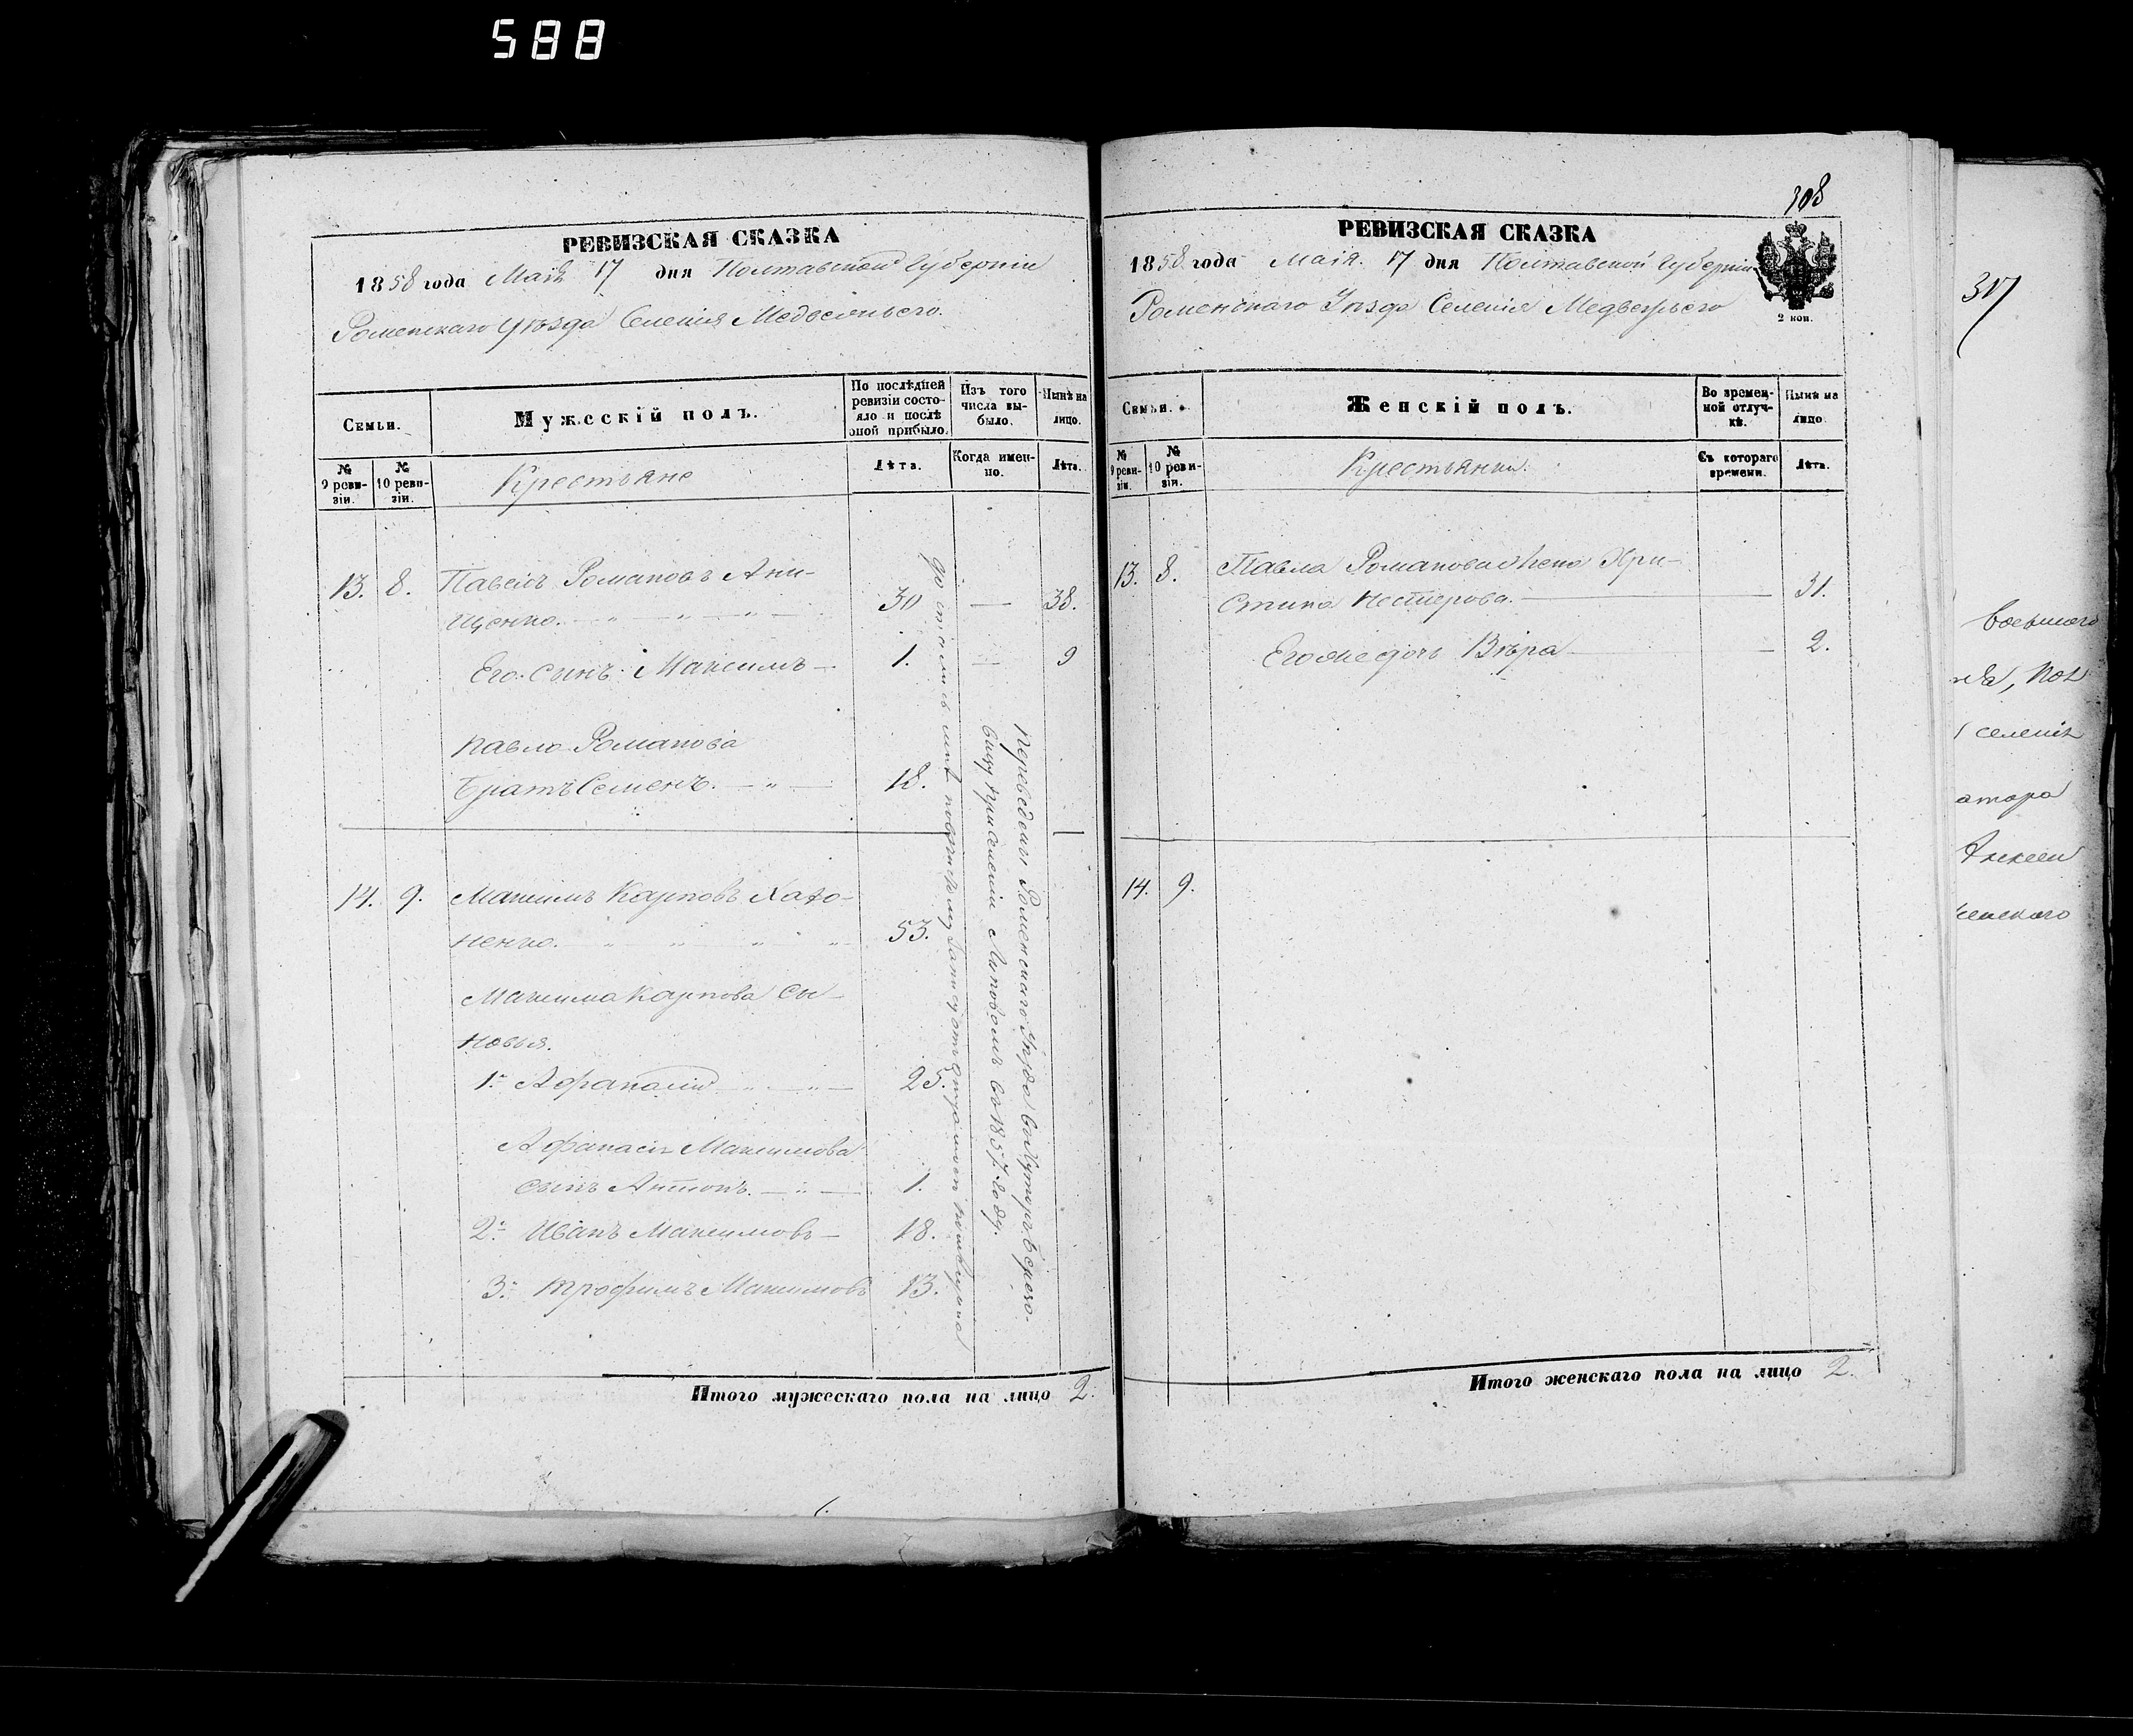 588
РЕВИЗСКАЯ СКАЗКА
1858 года Маія 17 дня Полтавской Губерніи
Роменскаго уѣзда Селенія Медвежьяго.
Семьи.
Мужескій полъ.
По послѣдней ревизіи состояло и послѣ оной прибыло.
Изъ того числа выбыло.
Нынѣ на лицо.
№ 9 ревизіи.
№ 10 ревизіи.
Крестьяне
Лѣта.
Когда именно.
Лѣта.
13. 8. Павелъ Романовъ Ани-
щенко. 30 — 38.
Его сынъ Максимъ — 1. — 9
Павла Романова
Братъ Семенъ. — " — 18.
14. 9. Максимъ Карповъ Хато-
ненко. 53.
Максима Карпова Сы-
новья.
1й Афанасій 25.
Афанасія Максимова
сынъ Антонъ. — " — 1.
2й Иванъ Максимовъ — 18.
3й Трофимъ Максимовъ 13.
Переведены Роменскаго Уѣзда въ Хуторъ Берего-
вицу при селеніи Липовомъ въ 1857 году.
Итого мужескаго пола на лицо 2.
308
РЕВИЗСКАЯ СКАЗКА
1858 года Маія. 17 дня Полтавской Губерніи
Роменскаго Уѣзда Селенія Медвежьяго
2 коп.
Семьи.
Женскій полъ.
Во временной отлучкѣ.
Нынѣ на лицо.
№ 9 ревизіи.
№ 10 ревизіи.
Крестьянки.
Съ котораго времени.
Лѣта.
13. 8. Павла Романова жена Хри-
стина Нестерова. — 31.
Его же дочь Вѣра — 2.
14. 9.
Итого женскаго пола на лицо 2.
317
селенія